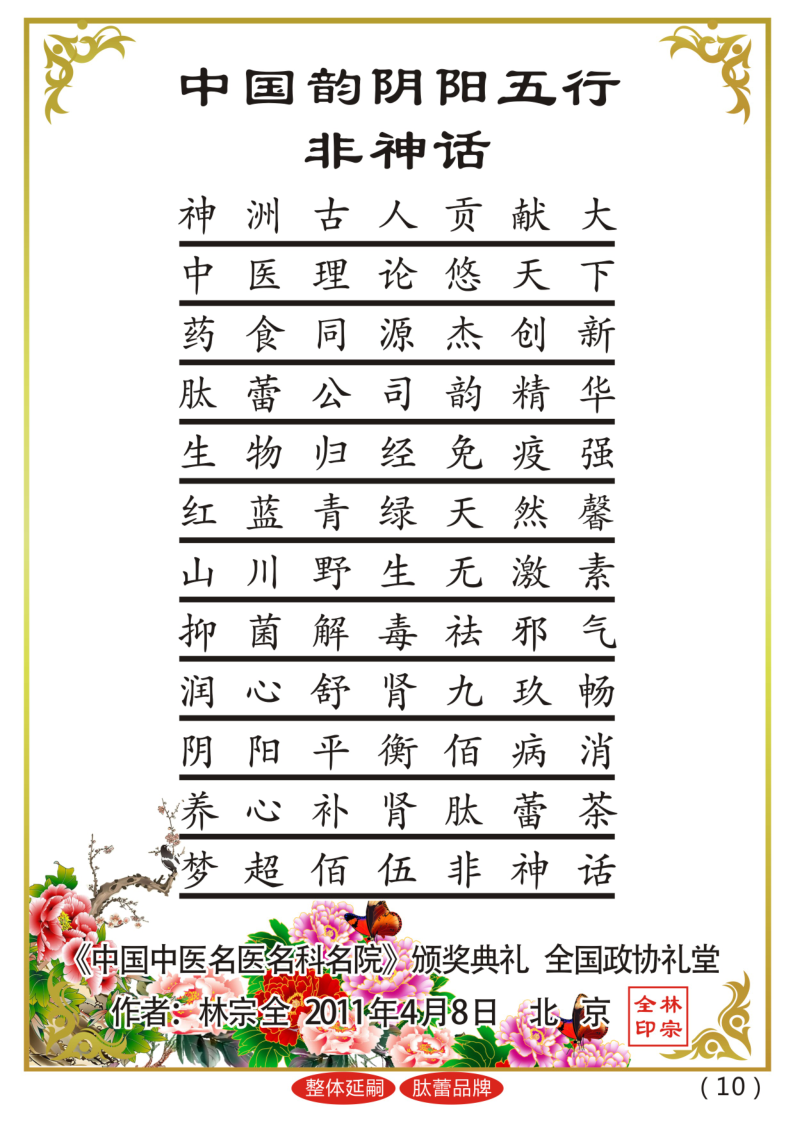 中国韵阴阳五行
非神话
神洲古人贡献大
中医理论悠天下
药食同源杰创新
肽蕾公司韵精华
生物归经免疫强
红蓝青绿天然馨
山川野生无激素
抑菌解毒祛邪气
润心舒肾九玖畅
阴阳平衡佰病消
养心补肾肽蕾茶
梦超佰伍非神话
《中国中医名医名科名院》颁奖典礼 全国政协礼堂
作者：林宗全 2011年4月8日 北 京
林宗全印
整体延嗣 肽蕾品牌
（10）